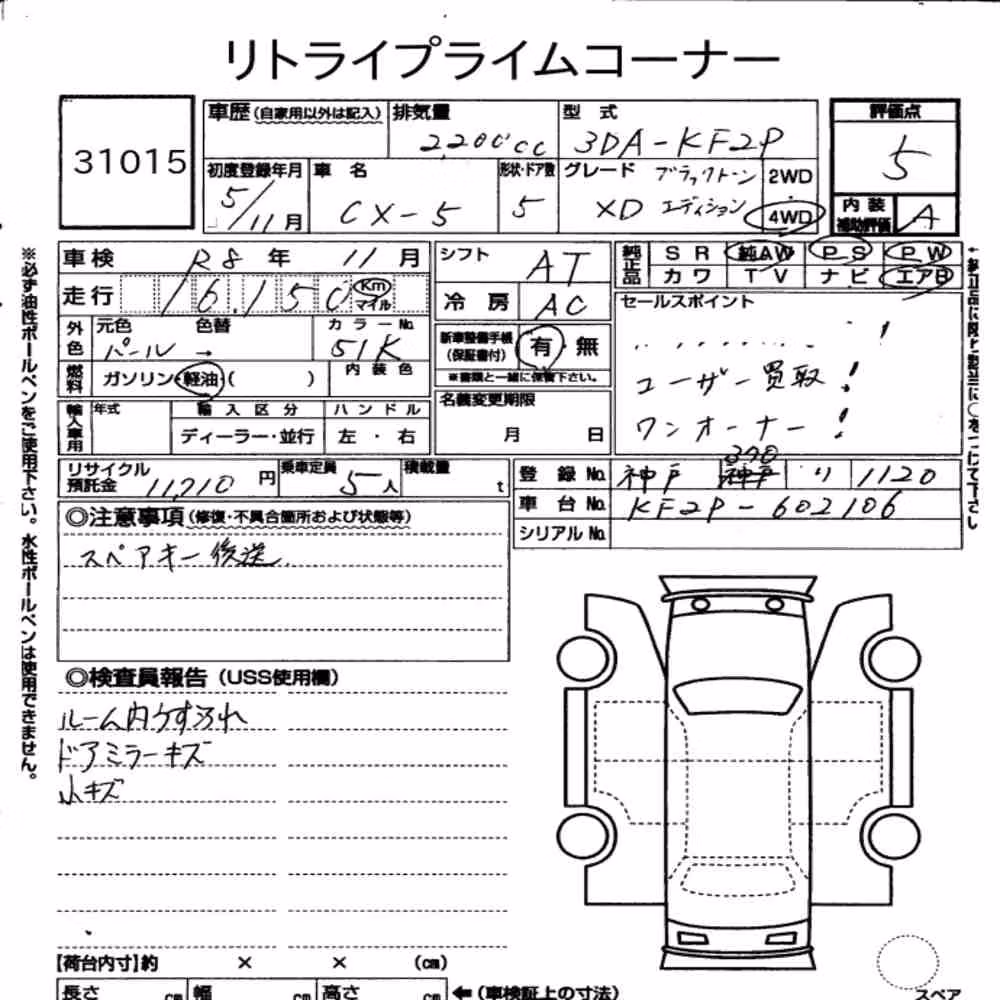 リトライプライムコーナー
31015
車歴(自家用以外は記入) 排気量 型式 評価点
2,200cc 3DA-KF2P 5
初度登録年月 車名 形状・ドア数 グレード ブラックトーン 2WD
5/11月 CX-5 5 XD エディション 4WD
内装補助評価 A
車検 R8年 11月 シフト AT
純正品 SR 純AW PS PW
カワ TV ナビ エアB
走行 16,150 Km マイル
冷房 AC
セールスポイント
外色 元色 色替 カラーNo.
パール → 51K
新車整備手帳(保証書付) 有・無
※書類と一緒に保管下さい。
ユーザー買取!
ワンオーナー!
燃料 ガソリン・軽油・( ) 内装色
名義変更期限
月 日
輸入車用 年式 輸入区分 ハンドル
ディーラー・並行 左・右
リサイクル預託金 11,710円 乗車定員 5人 積載量 t
登録No. 神戸 神戸 330 り 1120
車台No. KF2P-602106
シリアルNo.
◎注意事項(修復・不具合箇所および状態等)
スペアキー後送
◎検査員報告(USS使用欄)
ルーム内うすヨゴレ
ドアミラーキズ
小キズ
【荷台内寸】約 × × (cm)
長さ cm 幅 cm 高さ cm ←(車検証上の寸法)
スペア
※必ず油性ボールペンをご使用下さい。水性ボールペンは使用できません。